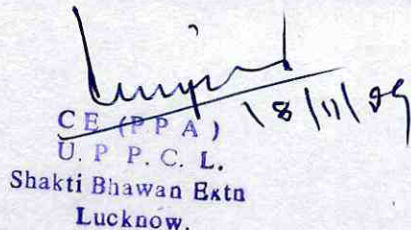 18/11/09
CE (PPA)
U. P P. C. L.
Shakti Bhawan Extn
Lucknow.